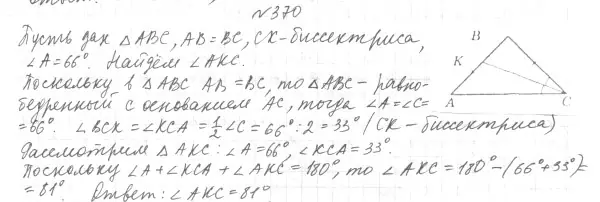 №370
Пусть дан △ABC, AB=BC, CK-биссектриса,
∠A=66°. Найдём ∠AKC.
Поскольку в △ABC AB=BC, то △ABC - равно-
бедренный с основанием AC, тогда ∠A=∠C=
=66°. ∠BCK=∠KCA=1/2∠C=66°:2=33° (CK-биссектриса)
Рассмотрим △AKC: ∠A=66°, ∠KCA=33°.
Поскольку ∠A+∠KCA+∠AKC=180°, то ∠AKC=180°-(66°+33°)=
=81°. Ответ: ∠AKC=81°
B
K
A
C